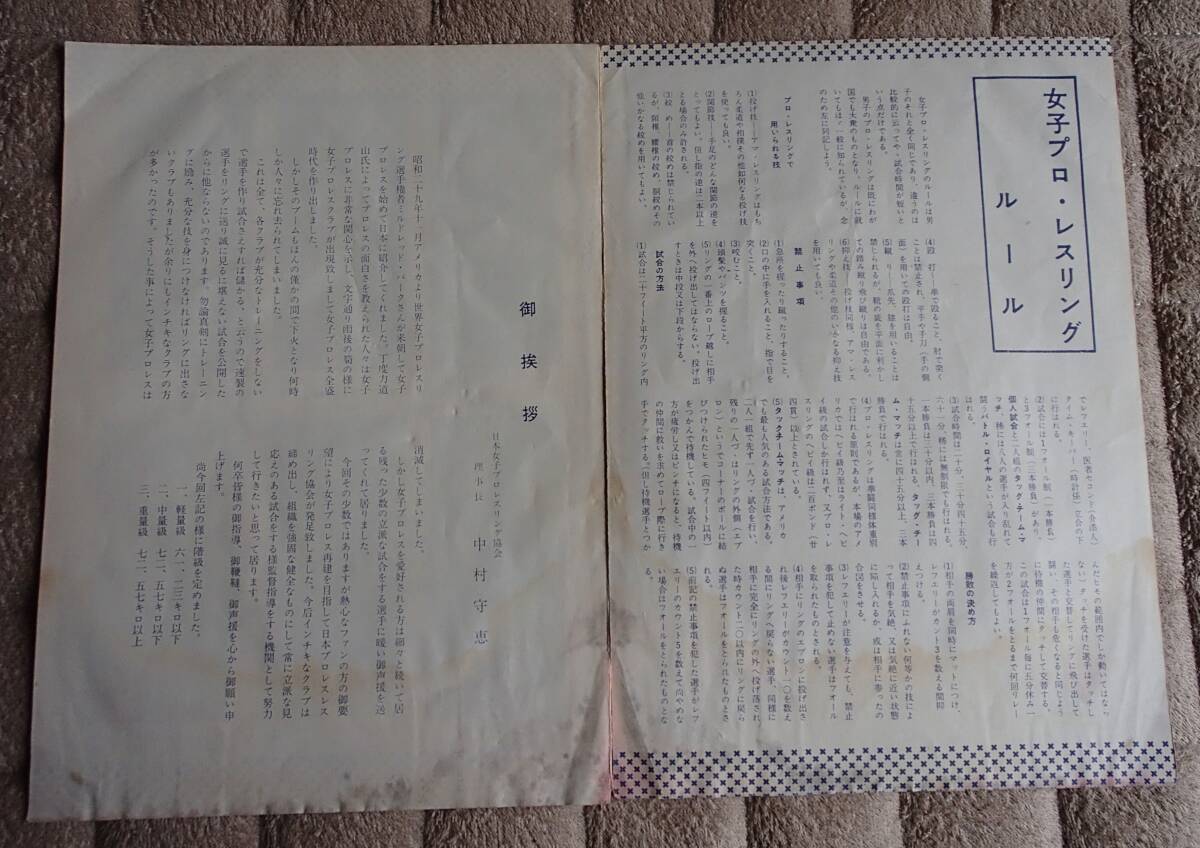 女子プロ・レスリング
ルール
女子プロ・レスリングのルールは男
子のそれと全く同じであり、違うのは
比較的に云ってや丶試合時間が短いと
いう点だけである。
男子のプロ・レスリングは既にわが
国でも大衆のものとなり、ルールに就
いてもほゞ一般に知られているが、念
のため左に同記しよう。
プロ・レスリングで
用いられる技
(1)投げ技——アマ・レスリングはもち
ろん柔道や相撲その他如何なる投げ技
を使っても良い。
(2)関節技——手足のどんな関節の逆を
とってもよい。但し指の逆は二本以上
とる場合のみ許される。
(3)絞 め——首の絞めは禁じられてい
るが、頭椎、腰椎の絞め、胴絞めその
他いかなる絞めを用いてもよい。
(4)殴 打——拳で殴ること、肘で突く
ことは禁止され、平手や手刀(手の側
面)を用いての殴打は自由。
(5)蹴 り——爪先、膝を用いることは
禁じられるが、靴の底を平面に利かし
ての踏み蹴り飛び蹴りは自由である。
(6)抑え技——投げ技同様、アマ・レス
リングや柔道その他のいかなる抑え技
を用いても良い。
禁止事項
(1)急所を握ったり蹴ったりすること。
(2)口の中に手を入れること、指で目を
突くこと。
(3)咬むこと。
(4)頭髪やパンツを掴ること。
(5)リングの一番上のロープ越しに相手
を外へ投げ出してはならない。投げ出
すときは中段又は下段からする。
試合の方法
(1)試合は二十フィート平方のリング内
でレフェリー、医者セコンド(介添人)
タイム・キーパー(時計係)立会の下
に行はれる。
(2)試合には1フォール制(一本勝負)
と3フォール制(三本勝負)があり、
個人試合と二人組のタックチーム・マ
マチ、稀には八人の選手が入り乱れて
闘うバトル・ロイヤルという試合も行
はれる。
(3)試合時間は二十分、三十分、四十五分、
六十一分、稀には無制限でも行はれる。
一本勝負は三十分以内、三本勝負は四
十五分以上で行はれる。タッグ・チー
ム・マッチは常に四十五分以上、三本
勝負で行はれる。
(4)プロ・レスリングは拳闘同様体重別
で行はれる原則であるが、本場のアメ
リカではヘビイ級乃至はライト・ヘビ
イ級の試合しか行はれず、又プロ・レ
スリングのヘビイ級は二百ポンド(廿
四貫)以上とされている。
(5)タックチームマッチは、アメリカ
でも最も人気のある試合方法である。
二人一組で先ず一人づゝ試合を行い、
残りの一人づゝはリングの外側(エプ
ロン)というでコーナーのポールに結
びつけられたヒモ(四フィート以内)
をつかんで待機している。試合中の一
方が疲労し又はピンチになると、待機
の仲間に救いを求めてロープ際に行き
手でタッチする。但し待機選手とつか
んだヒモの範囲内でしか動いてはなら
ない)タッチを受けた選手はタッチし
た選手と交替してリングに飛び出して
闘い、その相手も危なくなると同じよう
に待機の仲間にタッチして交替する。
この試合は1フォール毎に五分休み一
方が2フォールをとるまで何回リレー
を繰返してもよい。
勝敗の決め方
(1)相手の両肩を同時にマットにつけ、
レフェリーがカント3を数える間抑
えつける。
(2)禁止事項にふれない何等かの技によ
って相手を気絶、又は気絶に近い状態
に陥し入れるか、或は相手に参ったの
合図をさせる。
(3)レフェリーが注意を与えても、禁止
事項を犯して止めない選手はフォール
を取られたものとされる。
(4)相手にリングのエプロンに投げ出さ
れ後レフェリーがカウント一〇を数え
る間にリングへ戻らない選手、同様に
相手に完全にリングの外へ投げ落され
た時カウント二〇以内にリングに戻ら
ぬ選手はフォールをとられたものとさ
れる。
(5)前記の禁止事項を犯した選手がレフ
エリーのカウント5を数えて尚やめな
い場合はフォールをとられたものとな
る。
御挨拶
日本女子プロレスリング協会
理事長 中村守恵
昭和二十九年十一月アメリカより世界女子プロレスリ
ング選手権者ミルドレッド・バークさんが来朝して女子
プロレスを始めて日本に紹介してくれました。丁度力道
山氏によってプロレスの面白さを教えられた人々は女子
プロレスに非常な関心を示し、文字通り雨後の筍の様に
女子プロレスクラブが出現致しまして女子プロレス全盛
時代を作り出しました。
しかしそのブームもほんの僅かの間で下火となり何時
しか人々に忘れ去られてしまいました。
これは全て、各クラブが充分なトレーニングをしない
で選手を作り試合さえすれば儲かる、と云うので速製の
選手をリングに送り誠に見るに堪えない試合を公開した
からに他ならないのであります。勿論真剣にトレーニン
グに励み、充分な技を身につけなければリングに出さな
いクラブもありましたが余りにもインチキなクラブの方
が多かったのです。そうした事によって女子プロレスは
消滅してしまいました。
しかし女子プロレスを愛好される方は細々と続いて居
る残った少数の立派な試合をする選手に暖い御声援を送
ってくれて居りました。
今回その少数ではありますが熱心なファンの方の御要
望により女子プロレス再建を目指して日本プロレスレス
リング協会が発足致しました。今后インチキなクラブは
締め出し、組織を強固な健全なものにして常に立派な見
応えのある試合をする様監督指導をする機関として努力
して行きたいと思って居ります。
何卒皆様の御指導、御鞭韃、御声援を心から御願い申
上げます。
尚今回左記の様に階級を定めました。
一、軽量級 六一、二三キロ以下
二、中量級 七二、五七キロ以下
三、重量級 七二、五七キロ以上